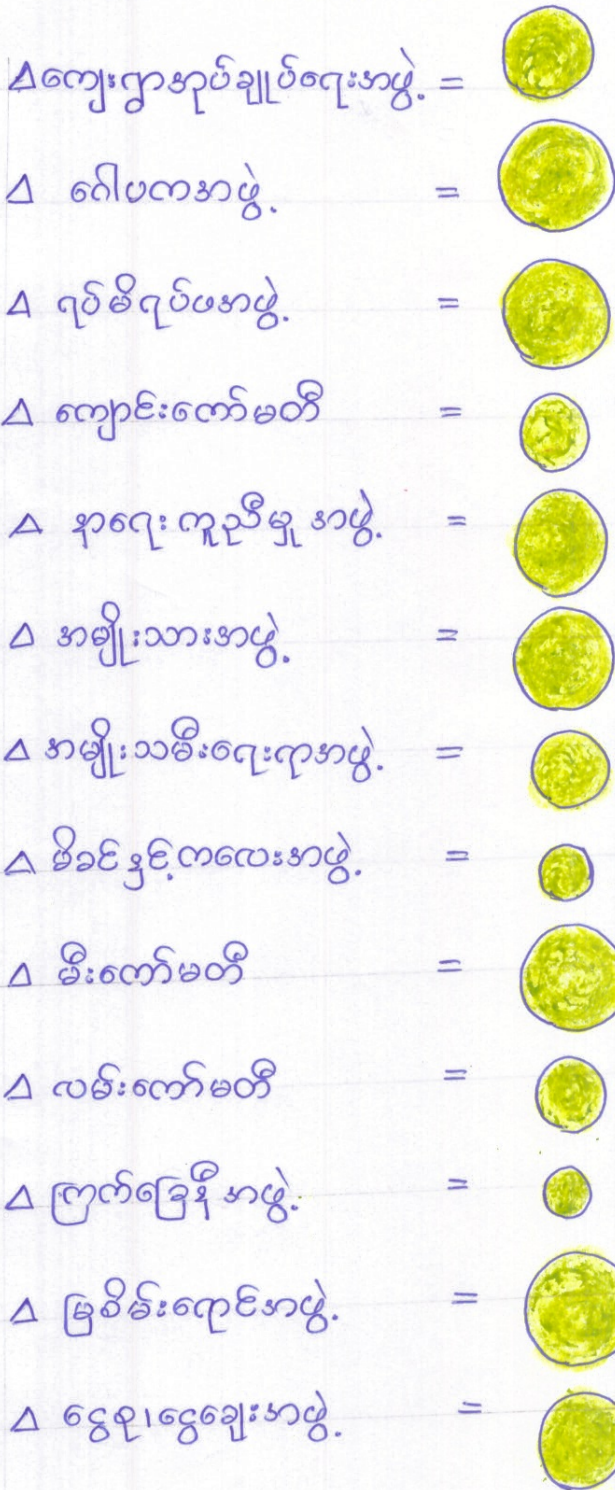 Δကျေးရွာအုပ်ချုပ်ရေးအဖွဲ့ =
Δ ဂေါပကအဖွဲ့ =
Δ ရပ်မိရပ်ဖအဖွဲ့ =
Δ ကျောင်းကော်မတီ =
Δ နာရေးကူညီမှုအဖွဲ့ =
Δ အမျိုးသားအဖွဲ့ =
Δ အမျိုးသမီးရေးရာအဖွဲ့ =
Δ မိခင်နှင့်ကလေးအဖွဲ့ =
Δ မီးကော်မတီ =
Δ လမ်းကော်မတီ =
Δ ကြက်ခြေနီအဖွဲ့ =
Δ မြစိမ်းရောင်အဖွဲ့ =
Δ ငွေစု၊ငွေချေးအဖွဲ့ =